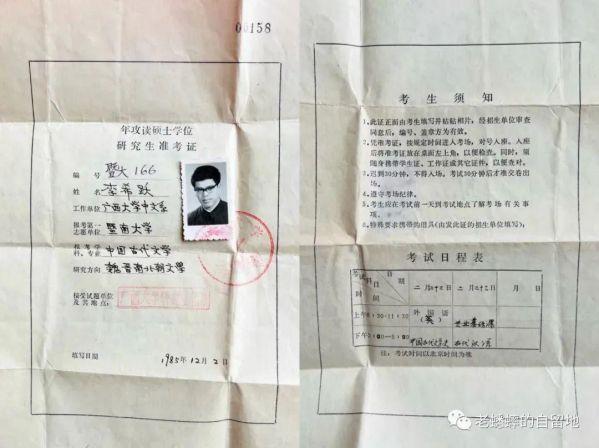 00158
年攻读硕士学位
研究生准考证
编号 暨大166
姓名 李希跃
工作单位 广西大学中文系
报考第一志愿单位 暨南大学
报考学科、专业 中国古代文学
研究方向 魏晋南北朝文学
接受试题单位及其地点:
填写日期 1985.12.2
考生须知
1.此证正面由考生填写并粘贴相片,经招生单位审查
同意后,编号、盖章方为有效。
2.凭准考证,按规定时间进入考场,对号入座。入座
后将准考证放在桌面左上角,以便检查。同时,须
随身携带学生证、工作证或其它证件,以便查对。
3.迟到30分钟,不得入场。考试30分钟后才准交卷出
场。
4.遵守考场纪律。
5.考生应在考试前一天到考试地点了解考场有关事
项。
6.特殊要求携带的用具(由发此证的招生单位填写):
考试日程表
考试科目 日期 时间
二月 日 二月 日
上午8:30—11:30 外国语(英) 专业基础课
下午2:00—5:00 中国古代文学史 古代汉语
注:考试时间以北京时间为准
老蟋蟀的自留地